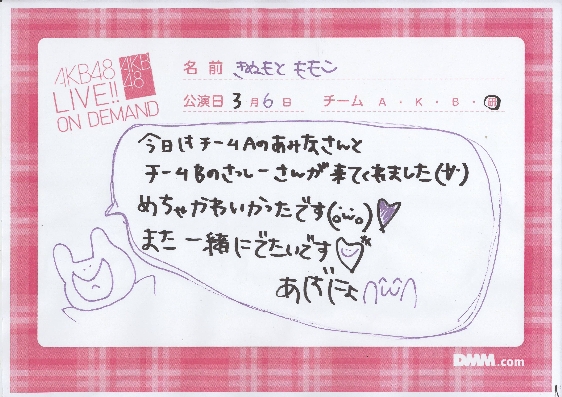 AKB48
LIVE!!
ON DEMAND
AKB
48
名前 きぬもと ももこ
公演日 3月6日 チーム A・K・B・研
今日はチームAのあみ友さんと
チームBのさっしーさんが来てくれました(∀`)
めちゃかわいかったです(oωo)
また一緒にでたいです
あげにょ∩ω∩
DMM.com